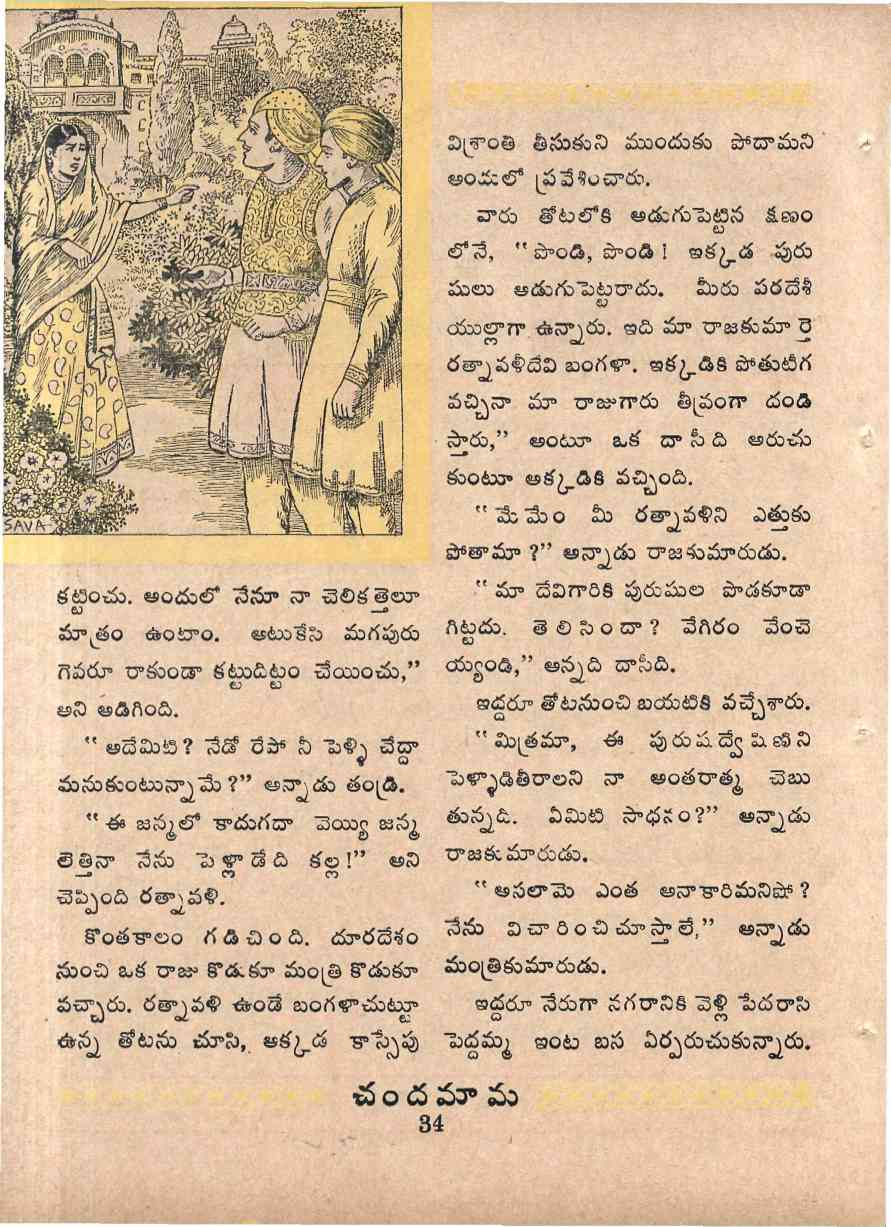 SAVA
కట్టించు. అందులో నేనూ నా చెలికత్తెలూ
మాత్రం ఉంటాం. అటుకేసి మగపురు
గెవరూ రాకుండా కట్టుదిట్టం చేయించు,”
అని అడిగింది.
“ అదేమిటి? నేడో రేపో నీ పెళ్ళి చేద్దా
మనుకుంటున్నామే ?” అన్నాడు తండ్రి.
“ ఈ జన్మలో కాదుగదా వెయ్యి జన్మ
లెత్తినా నేను పెళ్లాడేది కల్ల !” అని
చెప్పింది రత్నావళి.
కొంతకాలం గడిచింది. దూరదేశం
నుంచి ఒక రాజు కొడుకూ మంత్రి కొడుకూ
వచ్చారు. రత్నావళి ఉండే బంగళాచుట్టూ
ఉన్న తోటను చూసి, అక్కడ కాస్సేపు
విశ్రాంతి తీసుకుని ముందుకు పోదామని
అందులో ప్రవేశించారు.
వారు తోటలోకి అడుగుపెట్టిన క్షణం
లోనే, “ పొండి, పొండి ! ఇక్కడ పురు
షులు అడుగుపెట్టరాదు. మీరు పరదేశీ
యుల్లాగా ఉన్నారు. ఇది మా రాజకుమార్తె
రత్నావళీదేవి బంగళా. ఇక్కడికి పోతుటీగ
వచ్చినా మా రాజుగారు తీవ్రంగా దండి
స్తారు,” అంటూ ఒక దాసీది అరుచు
కుంటూ అక్కడికి వచ్చింది.
“ మేమేం మీ రత్నావళిని ఎత్తుకు
పోతామా ?” అన్నాడు రాజకుమారుడు.
“ మా దేవిగారికి పురుషుల పొడకూడా
గిట్టదు. తెలిసిందా ? వేగిరం వేంచె
య్యండి,” అన్నది దాసీది.
ఇద్దరూ తోటనుంచి బయటికి వచ్చేశారు.
“ మిత్రమా, ఈ పురుషద్వేషిణిని
పెళ్ళాడితీరాలని నా అంతరాత్మ చెబు
తున్నది. ఏమిటి సాధనం?” అన్నాడు
రాజకుమారుడు.
“ అసలామె ఎంత అనాకారిమనిషో ?
నేను విచారించిచూస్తాలే,” అన్నాడు
మంత్రికుమారుడు.
ఇద్దరూ నేరుగా నగరానికి వెళ్లి పేదరాసి
పెద్దమ్మ ఇంట బస ఏర్పరుచుకున్నారు.
చందమామ
34